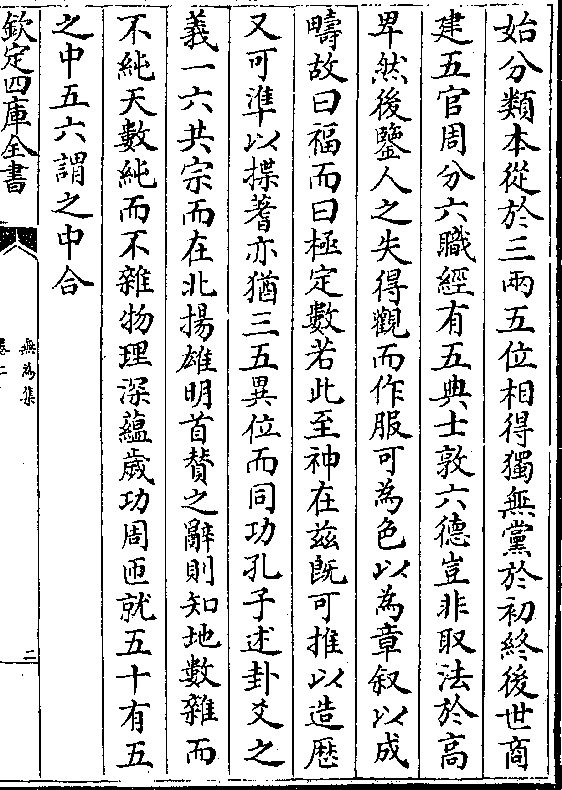 始分類本從於三兩五位相得獨無黨於初終後世商
建五官周分六職經有五典士敦六德豈非取法於高
卑然後鑒人之失得觀而作服可為色以為章叙以成
疇故曰福而曰極定數若此至神在兹既可推以造厯
又可準以揲蓍亦猶三五異位而同功孔子述卦爻之
義一六共宗而在北揚雄明首賛之辭則知地數雜而
不純天數純而不雜物理深蘊歲功周匝就五十有五
之中五六謂之中合
欽定四庫全書
無為集
卷二
二